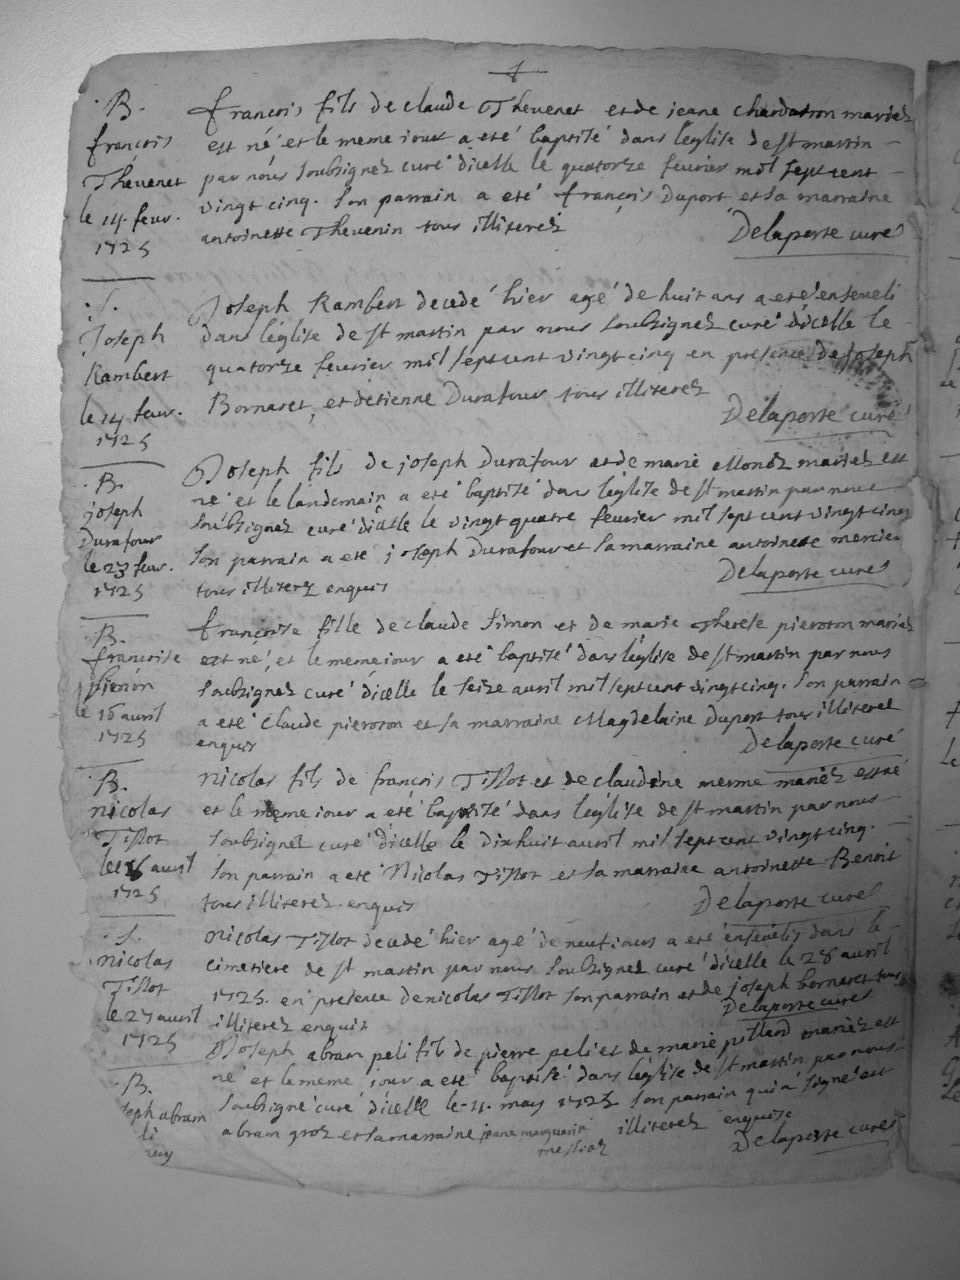 B.
françois
Thevenet
le 14. feur.
1725
françois fils de claude Thevenet et de jeane chardatron mariez
est né et le meme iour a eté baptisé dans léglise de st martin
par nous soubsignez curé dicelle le quatorze feurier mil sept cent
vingt cinq. son parrain a eté françois duport et sa marraine
antoinette Thevenin tous illiterez
Delaporte curé
S.
Joseph
Rambert
le 14 feur.
1725
Joseph Rambert decedé hier agé de huit ans a eté enseueli
dans léglise de st martin par nous soubsignez curé dicelle le
quatorze feurier mil sept cent vingt cinq en presence de joseph
Bornaret, et detienne Durafour tous illiterez
Delaporte curé
B.
joseph
Durafour
le 23 feur.
1725
Joseph fils de joseph Durafour et de marie mariez est
né et le landemain a eté baptisé dans léglise de st martin par nous
soubsignez curé dicelle le vingt quatre feurier mil sept cent vingt cinq
son parrain a eté joseph Durafour et sa marraine antoinette mercier
tous illiterz enquis
Delaporte curé
B.
francoise
simon
le 16 auril
1725
francoise fille de claude Simon et de marie Therese pieroton mariez
est né et le meme iour a eté baptisé dans léglise de st martin par nous
soubsignez curé dicelle le seize auril mil sept cent vingt cinq. son parrain
a eté claude pieroton et sa marraine Magdelaine duport tous illiterez
enquis
Delaporte curé
B.
nicolas
Tissot
le auril
1725
nicolas fils de françois Tissot et de claudine merme mariez est né
et le meme iour a eté baptisé dans léglise de st martin par nous
soubsignez curé dicelle le dixhuit auril mil sept cent vingt cinq.
son parrain a eté Nicolas Tissot et sa marraine antoinette Benoit
tous illiterez enquis
Delaporte curé
S.
nicolas
Tissot
le 27 auril
1725
nicolas Tissot decedé hier agé de neuf iours a eté enseuelis dans le
cimetiere de st martin par nous soubsignez curé dicelle le 28 auril
1725. en presence de nicolas Tissot son parrain et de joseph bornaret tous
illiterez enquis
Delaporte curé
B.
seph abram
li
may
Joseph abram peli fils de pierre peli et de marie pillard mariez est
né et le meme iour a eté baptisé dans léglise de st martin par nous
soubsigné curé dicelle le 11. may 1725 son parrain qui a signé est
abram groz et sa marraine jeane marguerite illiterez enquise
Delaporte curé